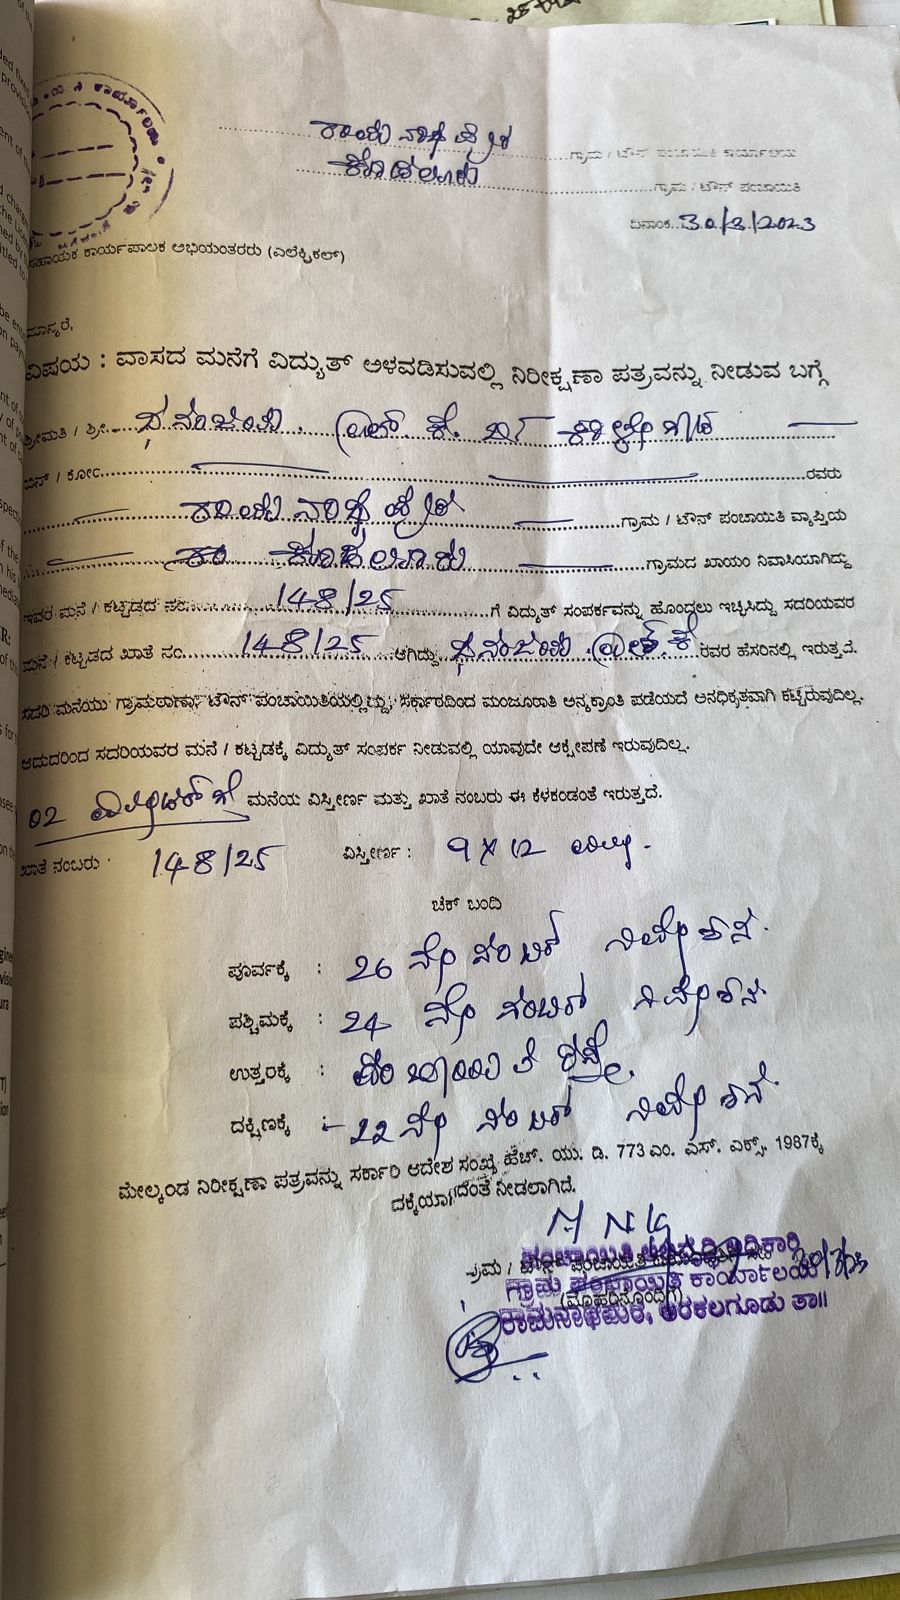 ರಾಮನಾಥಪುರ ಗ್ರಾಮ / ಟೌನ್ ಪಂಚಾಯಿತಿ ಕಾರ್ಯಾಲಯ
ಕೊಡಲೂರು ಗ್ರಾಮ / ಟೌನ್ ಪಂಚಾಯಿತಿ
ದಿನಾಂಕ 30/3/2023
ಸಹಾಯಕ ಕಾರ್ಯಪಾಲಕ ಅಭಿಯಂತರರು (ಎಲೆಕ್ಟ್ರಿಕಲ್)
ಮಾನ್ಯರೆ,
ವಿಷಯ : ವಾಸದ ಮನೆಗೆ ವಿದ್ಯುತ್ ಅಳವಡಿಸುವಲ್ಲಿ ನಿರೀಕ್ಷಣಾ ಪತ್ರವನ್ನು ನೀಡುವ ಬಗ್ಗೆ
ಶ್ರೀಮತಿ / ಶ್ರೀ. ಧನಂಜಯ. ಎಲ್. ಕೆ. ಬಿನ್
ಬಿನ್ / ಕೋಂ ರವರು
ರಾಮನಾಥಪುರ ಗ್ರಾಮ / ಟೌನ್ ಪಂಚಾಯಿತಿ ವ್ಯಾಪ್ತಿಯ
ಕೊಡಲೂರು ಗ್ರಾಮದ ಖಾಯಂ ನಿವಾಸಿಯಾಗಿದ್ದು
ಇವರ ಮನೆ / ಕಟ್ಟಡದ ನಂ. 148/25 ಗೆ ವಿದ್ಯುತ್ ಸಂಪರ್ಕವನ್ನು ಹೊಂದಲು ಇಚ್ಛಿಸಿದ್ದು ಸದರಿಯವರ
ಮನೆ / ಕಟ್ಟಡದ ಖಾತೆ ನಂ. 148/25 ಆಗಿದ್ದು ಧನಂಜಯ. ಎಲ್. ಕೆ ರವರ ಹೆಸರಿನಲ್ಲಿ ಇರುತ್ತದೆ.
ಸದರಿ ಮನೆಯು ಗ್ರಾಮಠಾಣಾ/ ಟೌನ್ ಪಂಚಾಯಿತಿಯಲ್ಲಿದ್ದು, ಸರ್ಕಾರದಿಂದ ಮಂಜೂರಾತಿ ಅನ್ಯಕ್ರಾಂತಿ ಪಡೆಯದೆ ಅನಧಿಕೃತವಾಗಿ ಕಟ್ಟಿರುವುದಿಲ್ಲ.
ಆದುದರಿಂದ ಸದರಿಯವರ ಮನೆ / ಕಟ್ಟಡಕ್ಕೆ ವಿದ್ಯುತ್ ಸಂಪರ್ಕ ನೀಡುವಲ್ಲಿ ಯಾವುದೇ ಆಕ್ಷೇಪಣೆ ಇರುವುದಿಲ್ಲ.
02 ಮನೆಯ ವಿಸ್ತೀರ್ಣ ಮತ್ತು ಖಾತೆ ನಂಬರು ಈ ಕೆಳಕಂಡಂತೆ ಇರುತ್ತದೆ.
ಖಾತೆ ನಂಬರು 148/25 ವಿಸ್ತೀರ್ಣ : 9 X 12
ಚೆಕ್ ಬಂದಿ
ಪೂರ್ವಕ್ಕೆ : 26 ನೇ ನಂಬರ್ ನಿವೇಶನ.
ಪಶ್ಚಿಮಕ್ಕೆ : 24 ನೇ ನಂಬರ್ ನಿವೇಶನ.
ಉತ್ತರಕ್ಕೆ : ಪಂಚಾಯಿತಿ ರಸ್ತೆ.
ದಕ್ಷಿಣಕ್ಕೆ :- 22 ನೇ ನಂಬರ್ ನಿವೇಶನ.
ಮೇಲ್ಕಂಡ ನಿರೀಕ್ಷಣಾ ಪತ್ರವನ್ನು ಸರ್ಕಾರಿ ಆದೇಶ ಸಂಖ್ಯೆ ಹೆಚ್. ಯು. ಡಿ. 773 ಎಂ. ಎಸ್. ಎಕ್ಸ್. 1987ಕ್ಕೆ
ದಕ್ಕೆಯಾಗದಂತೆ ನೀಡಲಾಗಿದೆ.
ಪಂಚಾಯಿತಿ ಅಭಿವೃದ್ಧಿ ಅಧಿಕಾರಿ
ಗ್ರಾಮ ಪಂಚಾಯಿತಿ ಕಾರ್ಯಾಲಯ 30/3/23
(ಮೊಹರಿನೊಂದಿಗೆ)
ರಾಮನಾಥಪುರ, ಅರಕಲಗೂಡು ತಾ||